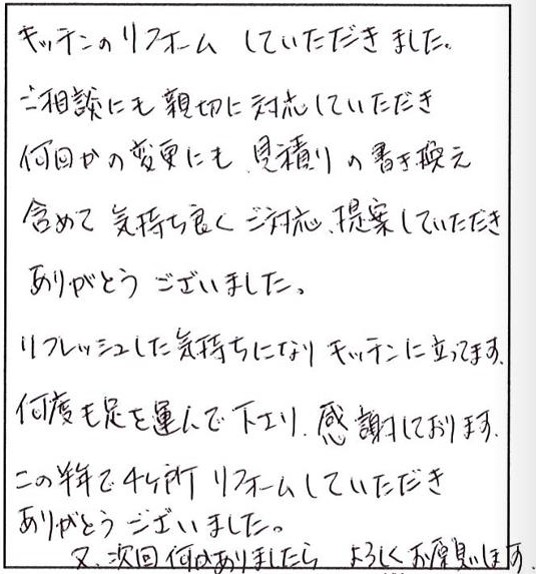 キッチンのリフォーム していただきました。
ご相談にも親切に対応していただき
何回かの変更にも、見積りの書き換え
含めて気持ち良くご対応、提案していただき
ありがとうございました。
リフレッシュした気持ちになりキッチンに立ってます。
何度も足を運んで下さり、感謝しております。
この半年で4ヶ所リフォームしていただき
ありがとうございました。
又、次回何かありましたら よろしくお願いします。